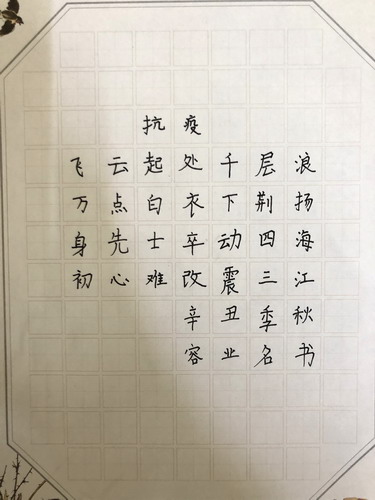 抗疫
飞云起处千层浪
万点白衣下荆扬
身先士卒动四海
初心难改震三江
辛丑季秋
容业名书